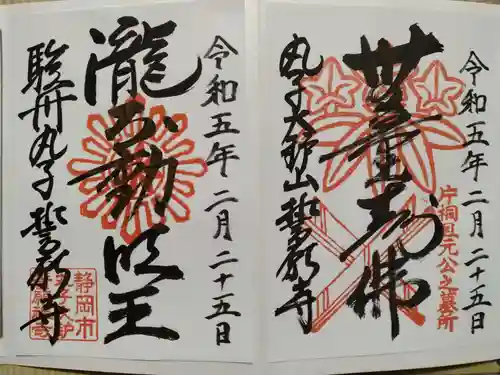 令和五年二月二十五日
片桐且元公之墓所
無量壽佛
丸子大野山誓願寺
令和五年二月二十五日
瀧不動明王
駿州丸子誓願寺
静岡市